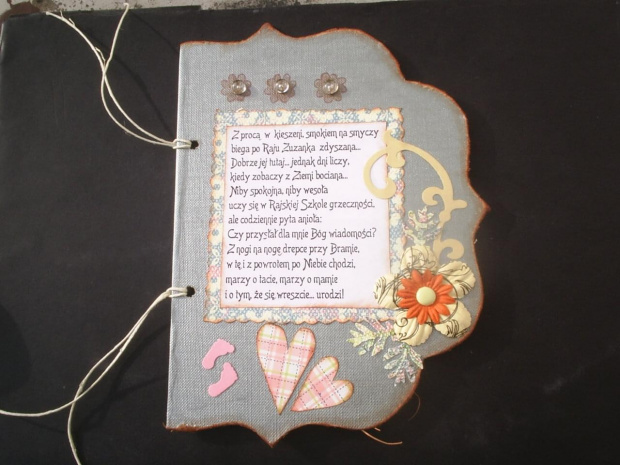 Z procą w kieszeni, smokiem na smyczy
biega po Raju Zuzanka zdyszana...
Dobrze jej tutaj... jednak dni liczy,
kiedy zobaczy z Ziemi bociana...
Niby spokojna, niby wesoła
uczy się w Rajskiej Szkole grzeczności,
ale codziennie pyta anioła:
Czy przysłał dla mnie Bóg wiadomości?
Z nogi na nogę drepce przy Bramie,
w tę i z powrotem po Niebie chodzi,
marzy o tacie, marzy o mamie
i o tym, że się wreszcie... urodzi!